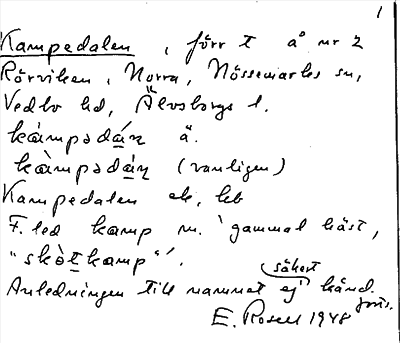 1
Kampedalen, förr t å nr 2
Rörviken, Norra, Nössemarks sn,
Vedbo hd, Älvsborgs l.
kàmpədáɳ ä.
kàmpədáɳ (vanligen)
Kampedalen ek, kb
F. led kamp m. 'gammal häst,
"skòtkamp"'.
säkert
Anledningen till namnet ej känd.
E. Rosell 1948